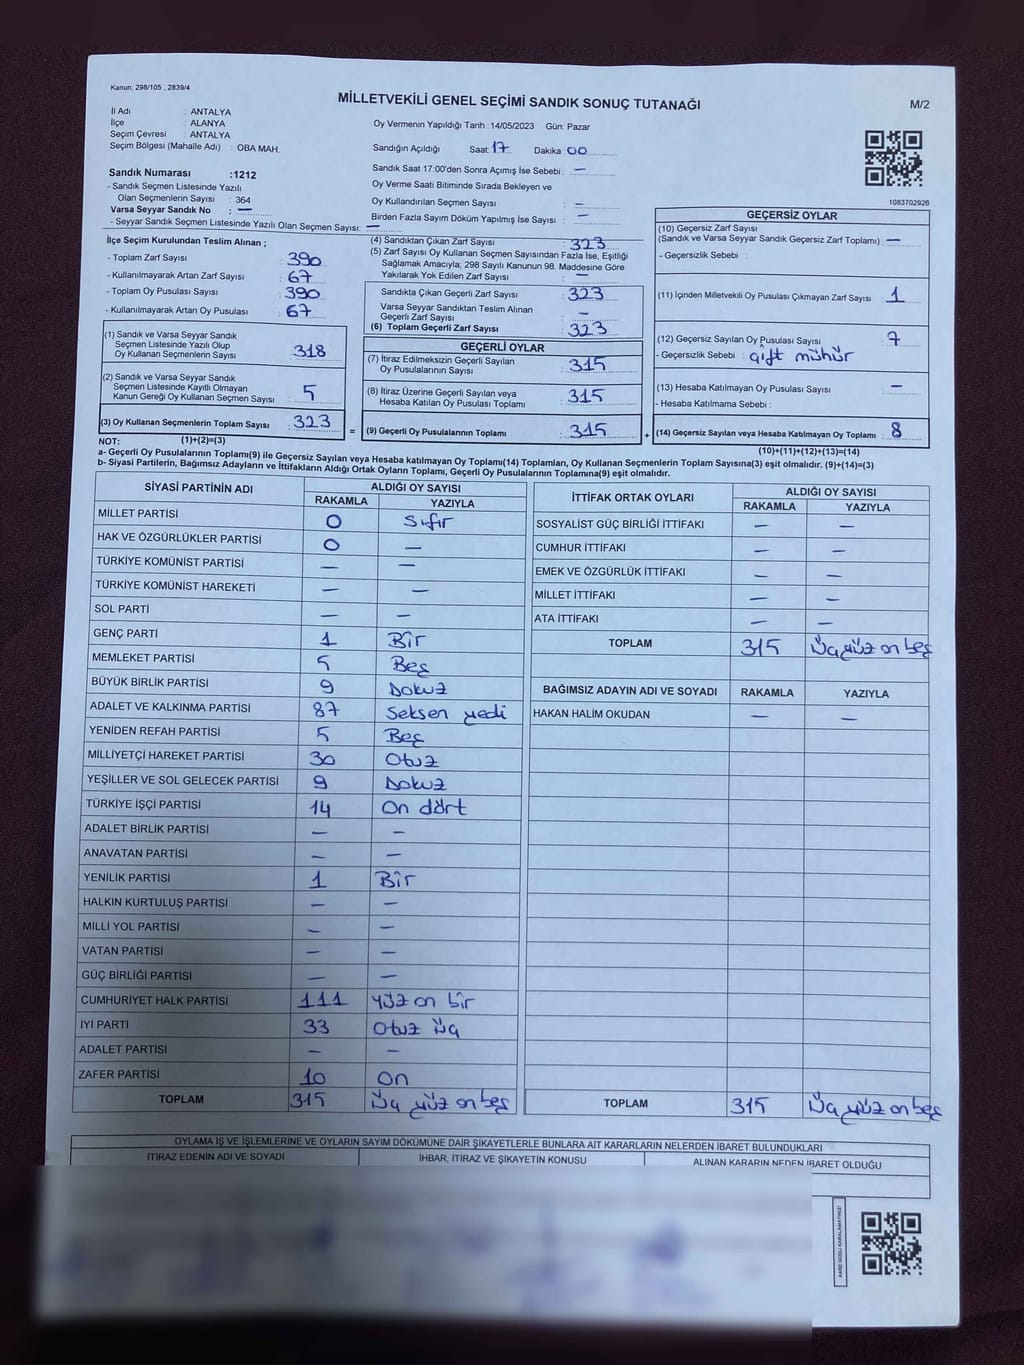 Kanun, 298/105 , 2839/4
MİLLETVEKİLİ GENEL SEÇİMİ SANDIK SONUÇ TUTANAĞI
M/2
İl Adı : ANTALYA
İlçe : ALANYA
Seçim Çevresi : ANTALYA
Seçim Bölgesi (Mahalle Adı) : OBA MAH.
Sandık Numarası :1212
- Sandık Seçmen Listesinde Yazılı
Olan Seçmenlerin Sayısı : 364
Varsa Seyyar Sandık No : —
- Seyyar Sandık Seçmen Listesinde Yazılı Olan Seçmen Sayısı: —
Oy Vermenin Yapıldığı Tarih :14/05/2023 Gün: Pazar
Sandığın Açıldığı Saat: 17 Dakika: 00
Sandık Saat 17:00'den Sonra Açımış İse Sebebi : —
Oy Verme Saati Bitiminde Sırada Bekleyen ve
Oy Kullandırılan Seçmen Sayısı : —
Birden Fazla Sayım Döküm Yapılmış İse Sayısı : —
1083702926
İlçe Seçim Kurulundan Teslim Alınan ;
- Toplam Zarf Sayısı : 390
- Kullanılmayarak Artan Zarf Sayısı : 67
- Toplam Oy Pusulası Sayısı : 390
- Kullanılmayarak Artan Oy Pusulası : 67
(1) Sandık ve Varsa Seyyar Sandık
Seçmen Listesinde Yazılı Olup
Oy Kullanan Seçmenlerin Sayısı : 318
(2) Sandık ve Varsa Seyyar Sandık
Seçmen Listesinde Kayıtlı Olmayan
Kanun Gereği Oy Kullanan Seçmen Sayısı : 5
(3) Oy Kullanan Seçmenlerin Toplam Sayısı : 323
(4) Sandıktan Çıkan Zarf Sayısı : 323
(5) Zarf Sayısı Oy Kullanan Seçmen Sayısından Fazla İse, Eşitliği
Sağlamak Amacıyla; 298 Sayılı Kanunun 98. Maddesine Göre
Yakılarak Yok Edilen Zarf Sayısı : —
Sandıkta Çıkan Geçerli Zarf Sayısı : 323
Varsa Seyyar Sandıktan Teslim Alınan
Geçerli Zarf Sayısı : —
(6) Toplam Geçerli Zarf Sayısı : 323
GEÇERLİ OYLAR
(7) İtiraz Edilmeksizin Geçerli Sayılan
Oy Pusulalarının Sayısı : 315
(8) İtiraz Üzerine Geçerli Sayılan veya
Hesaba Katılan Oy Pusulası Toplamı : 315
= (9) Geçerli Oy Pusulalarının Toplamı : 315
GEÇERSİZ OYLAR
(10) Geçersiz Zarf Sayısı
(Sandık ve Varsa Seyyar Sandık Geçersiz Zarf Toplamı) : —
- Geçersizlik Sebebi :
(11) İçinden Milletvekili Oy Pusulası Çıkmayan Zarf Sayısı : 1
(12) Geçersiz Sayılan Oy Pusulası Sayısı : 7
- Geçersizlik Sebebi : çift mühür
(13) Hesaba Katılmayan Oy Pusulası Sayısı : —
- Hesaba Katılmama Sebebi :
+ (14) Geçersiz Sayılan veya Hesaba Katılmayan Oy Toplamı : 8
NOT: (1)+(2)=(3)
(10)+(11)+(12)+(13)=(14)
a- Geçerli Oy Pusulalarının Toplamı(9) ile Geçersiz Sayılan veya Hesaba katılmayan Oy Toplamı(14) Toplamları, Oy Kullanan Seçmenlerin Toplam Sayısına(3) eşit olmalıdır. (9)+(14)=(3)
b- Siyasi Partilerin, Bağımsız Adayların ve İttifakların Aldığı Ortak Oyların Toplamı, Geçerli Oy Pusulalarının Toplamına(9) eşit olmalıdır.
SİYASİ PARTİNİN ADI ALDIĞI OY SAYISI
RAKAMLA YAZIYLA
MİLLET PARTİSİ 0 Sıfır
HAK VE ÖZGÜRLÜKLER PARTİSİ 0 —
TÜRKİYE KOMÜNİST PARTİSİ — —
TÜRKİYE KOMÜNİST HAREKETİ — —
SOL PARTİ — —
GENÇ PARTİ 1 Bir
MEMLEKET PARTİSİ 5 Beş
BÜYÜK BİRLİK PARTİSİ 9 Dokuz
ADALET VE KALKINMA PARTİSİ 87 Seksen yedi
YENİDEN REFAH PARTİSİ 5 Beş
MİLLİYETÇİ HAREKET PARTİSİ 30 Otuz
YEŞİLLER VE SOL GELECEK PARTİSİ 9 Dokuz
TÜRKİYE İŞÇİ PARTİSİ 14 On dört
ADALET BİRLİK PARTİSİ — —
ANAVATAN PARTİSİ — —
YENİLİK PARTİSİ 1 Bir
HALKIN KURTULUŞ PARTİSİ — —
MİLLİ YOL PARTİSİ — —
VATAN PARTİSİ — —
GÜÇ BİRLİĞİ PARTİSİ — —
CUMHURİYET HALK PARTİSİ 111 yüz on bir
İYİ PARTİ 33 Otuz üç
ADALET PARTİSİ — —
ZAFER PARTİSİ 10 On
TOPLAM 315 Üç yüz on beş
İTTİFAK ORTAK OYLARI ALDIĞI OY SAYISI
RAKAMLA YAZIYLA
SOSYALİST GÜÇ BİRLİĞİ İTTİFAKI — —
CUMHUR İTTİFAKI — —
EMEK VE ÖZGÜRLÜK İTTİFAKI — —
MİLLET İTTİFAKI — —
ATA İTTİFAKI — —
TOPLAM 315 Üçyüz on beş
BAĞIMSIZ ADAYIN ADI VE SOYADI RAKAMLA YAZIYLA
HAKAN HALİM OKUDAN — —
TOPLAM 315 Üçyüz on beş
OYLAMA İŞ VE İŞLEMLERİNE VE OYLARIN SAYIM DÖKÜMÜNE DAİR ŞİKAYETLERLE BUNLARA AİT KARARLARIN NELERDEN İBARET BULUNDUKLARI
İTİRAZ EDENİN ADI VE SOYADI İHBAR, İTİRAZ VE ŞİKAYETİN KONUSU ALINAN KARARIN NEDEN İBARET OLDUĞU
KARE KODU KARALAMAYINIZ!